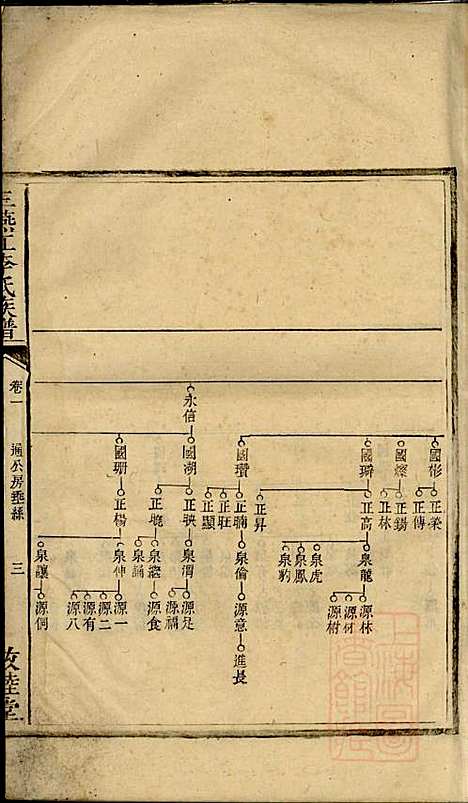 李氏族譜
卷一
通公房垂絲
三
敦睦堂
永信
國彬
國燦
國瓚
國湖
國珊
正榮
正傳
正錫
正林
正高
正昇
正旺
正顯
正映
正楊
泉龍
泉虎
泉鳳
泉豹
泉倫
泉渭
泉繼
泉誦
泉伸
泉讓
源林
源材
源樹
源意
源足
源福
源食
源一
源二
源有
源八
源侗
進長